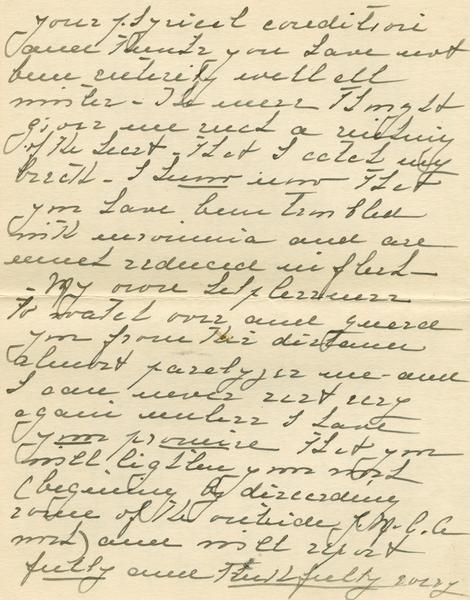 your physical condition
and thinks you have not
been entirely well all
winter - The mere thought
gives me such a sinking
of the heart - that I catch my
breath - I know now that
you have been troubled
with insomnia and are
much reduced in flesh -
- My own helplessness
to watch over and guard
you from this distance
almost paralyzes me - and
I can never rest easy
again unless I have
your promise that you
will lighten your work
(begining by discarding
some of the outside Y.M.C.A
work) and will report
fully and truthfully every